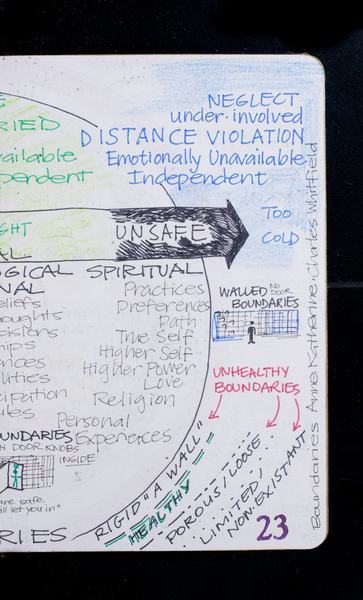 NEGLECT
under-involved
DISTANCE VIOLATION
Emotionally Unavailable
Independent
RIED
ailable
pendent
GHT
UNSAFE
TOO
COLD
GICAL SPIRITUAL
NAL
Practices
Preferences
Path
True Self
Higher Self
Higher Power
Love
Religion
Personal
Experiences
eliefs
oughts
cisions
hips
ences
lities
cipation
ules
WALLED NO DOOR
BOUNDARIES
UNHEALTHY
BOUNDARIES
UNDARIES
TH DOOR KNOBS
INSIDE
are safe.
ill let you in"
RIES
RIGID "A WALL"
HEALTHY
POROUS/LOOSE
LIMITED/
NON-EXISTANT
23
Boundaries Anne Katherine, Charles Whitfield